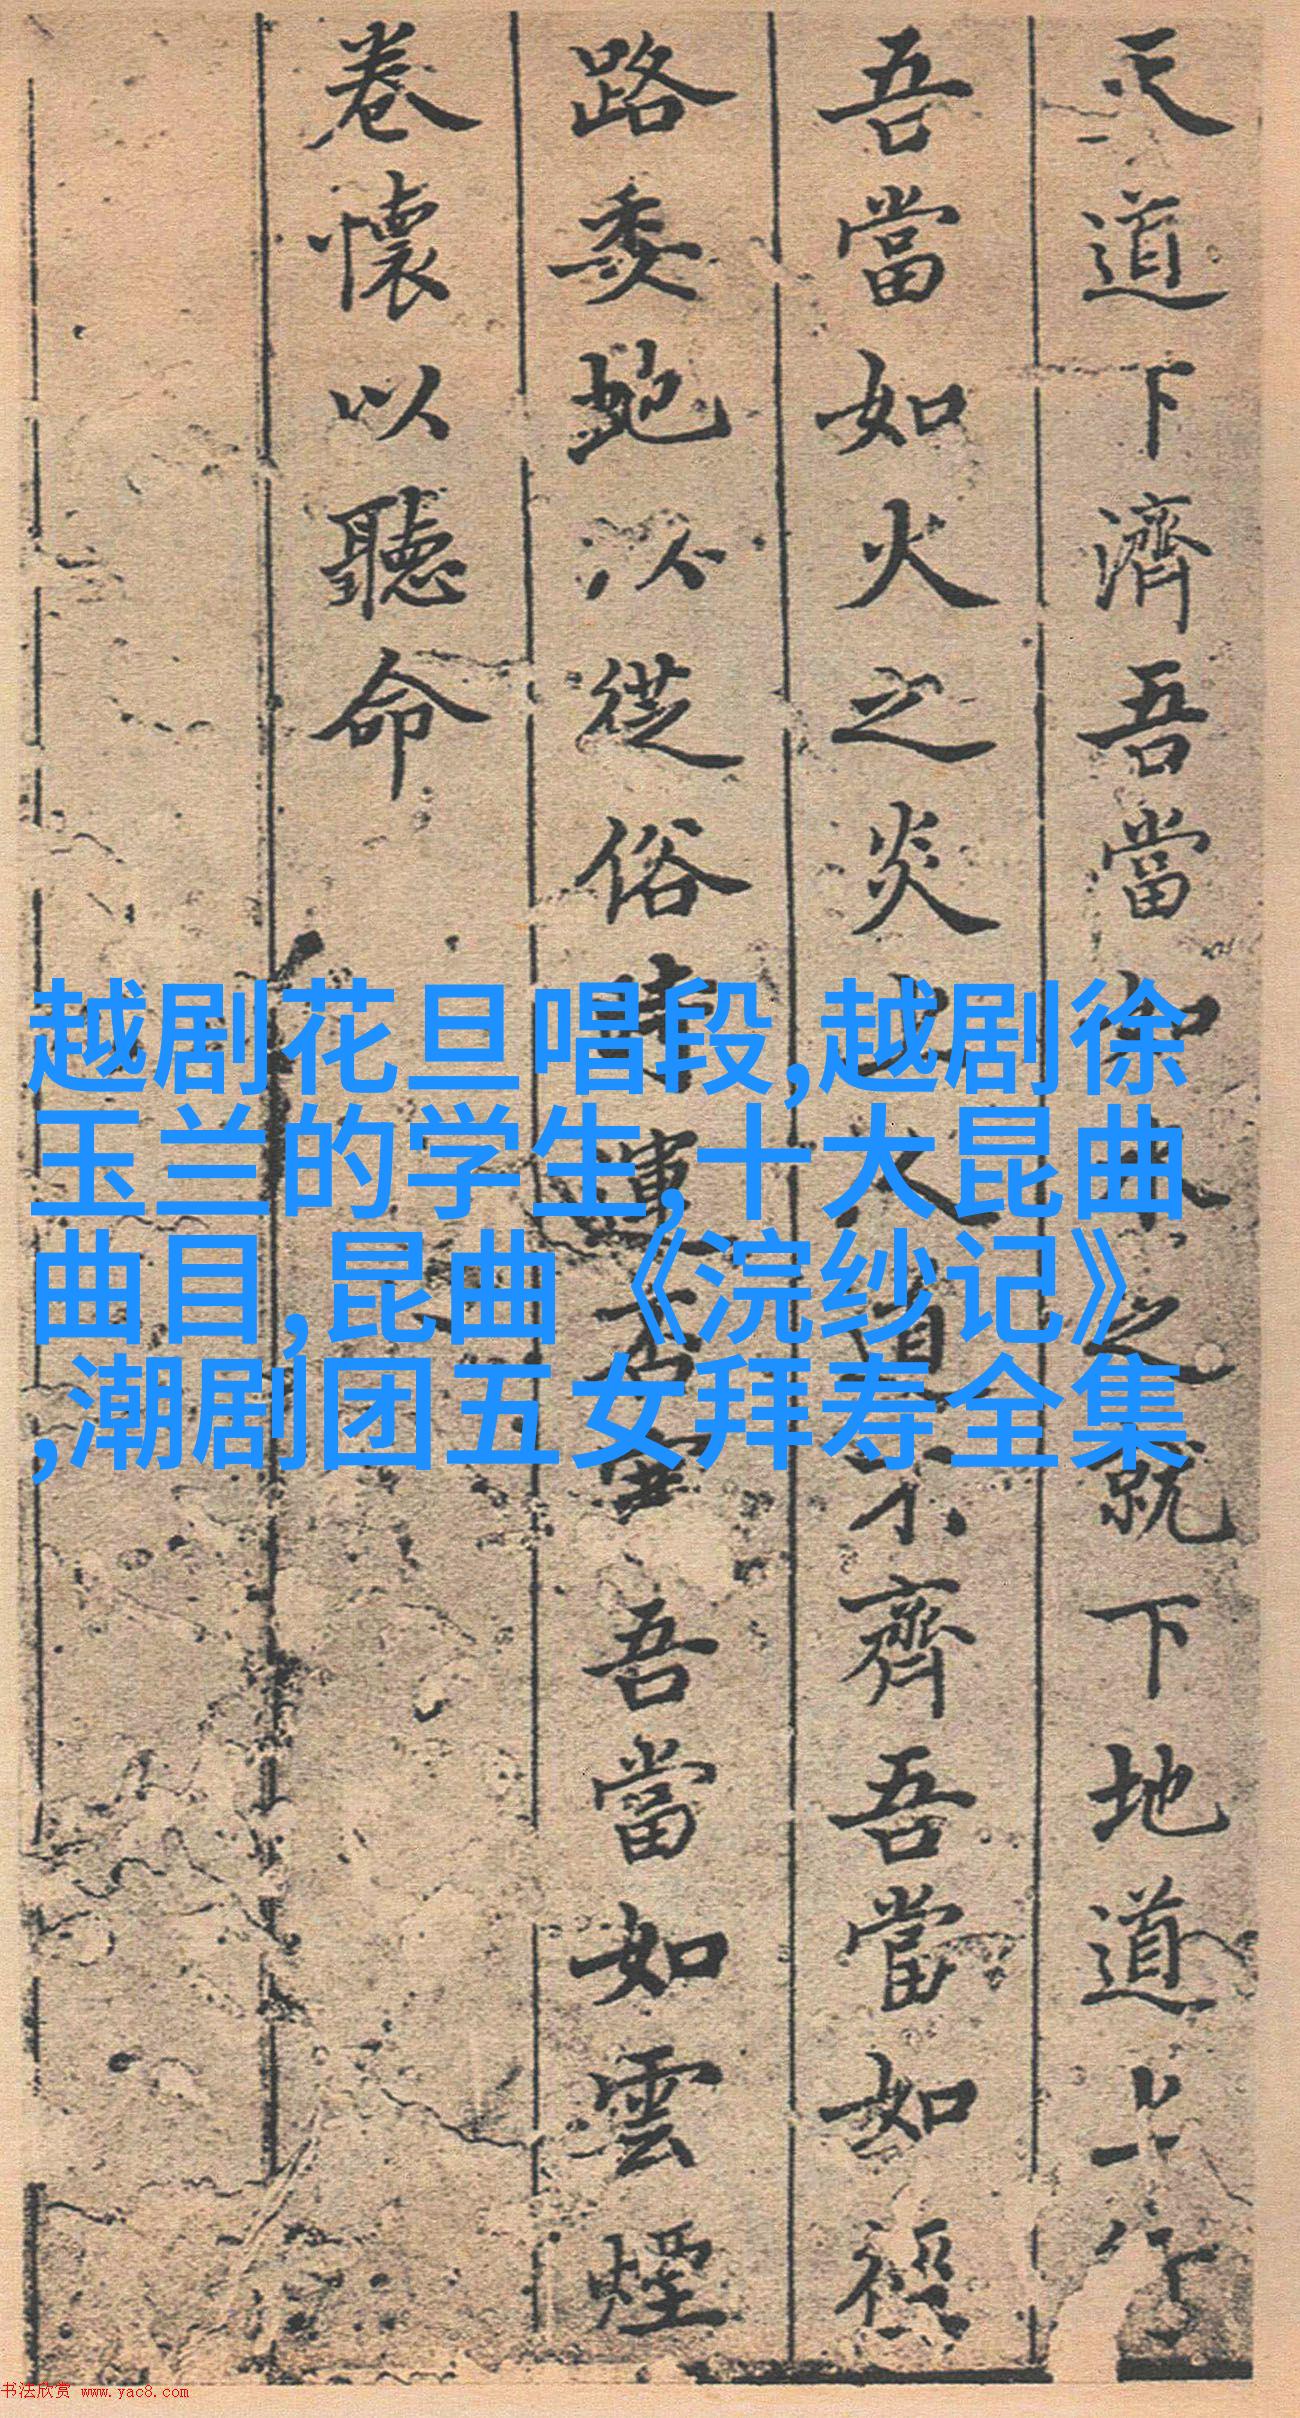 天道下濟吾當如水之就下地道上行
吾當如火之炎上人道不齊吾當如徑
路委虵以從俗時運否吾當如雲煙
卷懷以聽命
越剧花旦唱段,越剧徐
玉兰的学生,十大昆曲
曲目,昆曲《浣纱记》
,潮剧团五女拜寿全集
书法欣赏 www.yac8.com